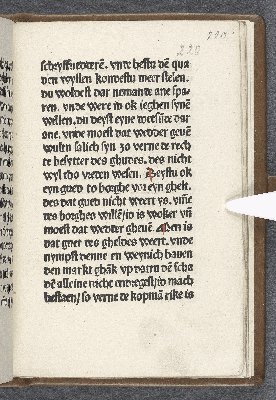 220
schryffuoerē. vnde hestu dē qua
den wyllen kondestu meer stelen.
du woldest dar nemande ane spa
ren. vnde were id ok ieghen synē
willen, du deyst eyne doetsūde dar
ane. vnde moest dat wedder geuē
wultu salich syn. so verne de rech
te besytter des ghudes, des nicht
wyl tho vreden wesen. Heystu ok
eyn gued to borghe vor eyn ghelt.
des dat gued nicht wert ys. vmme
des borghes willē/ so is woker vn̄
moest dat wedder gheuē. Men is
dat guet des gheldes weert. vnde
nympst denne en weynich bauen
den market
dē alleine nicht entdregest/id mach
bestaen/ so verne de kopmā riske is